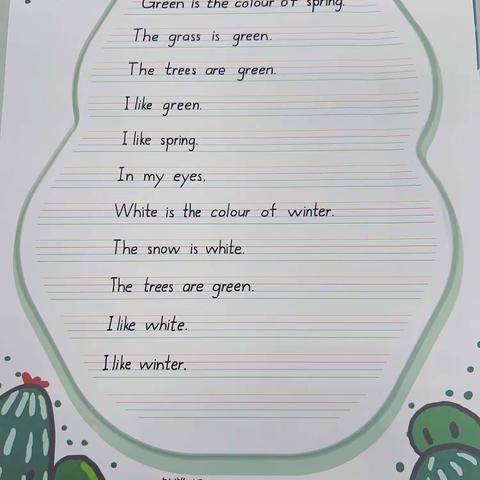 Green is the colour of spring.
The grass is green.
The trees are green.
I like green.
I like spring.
In my eyes,
White is the colour of winter.
The snow is white.
The trees are green.
I like white.
I like winter.